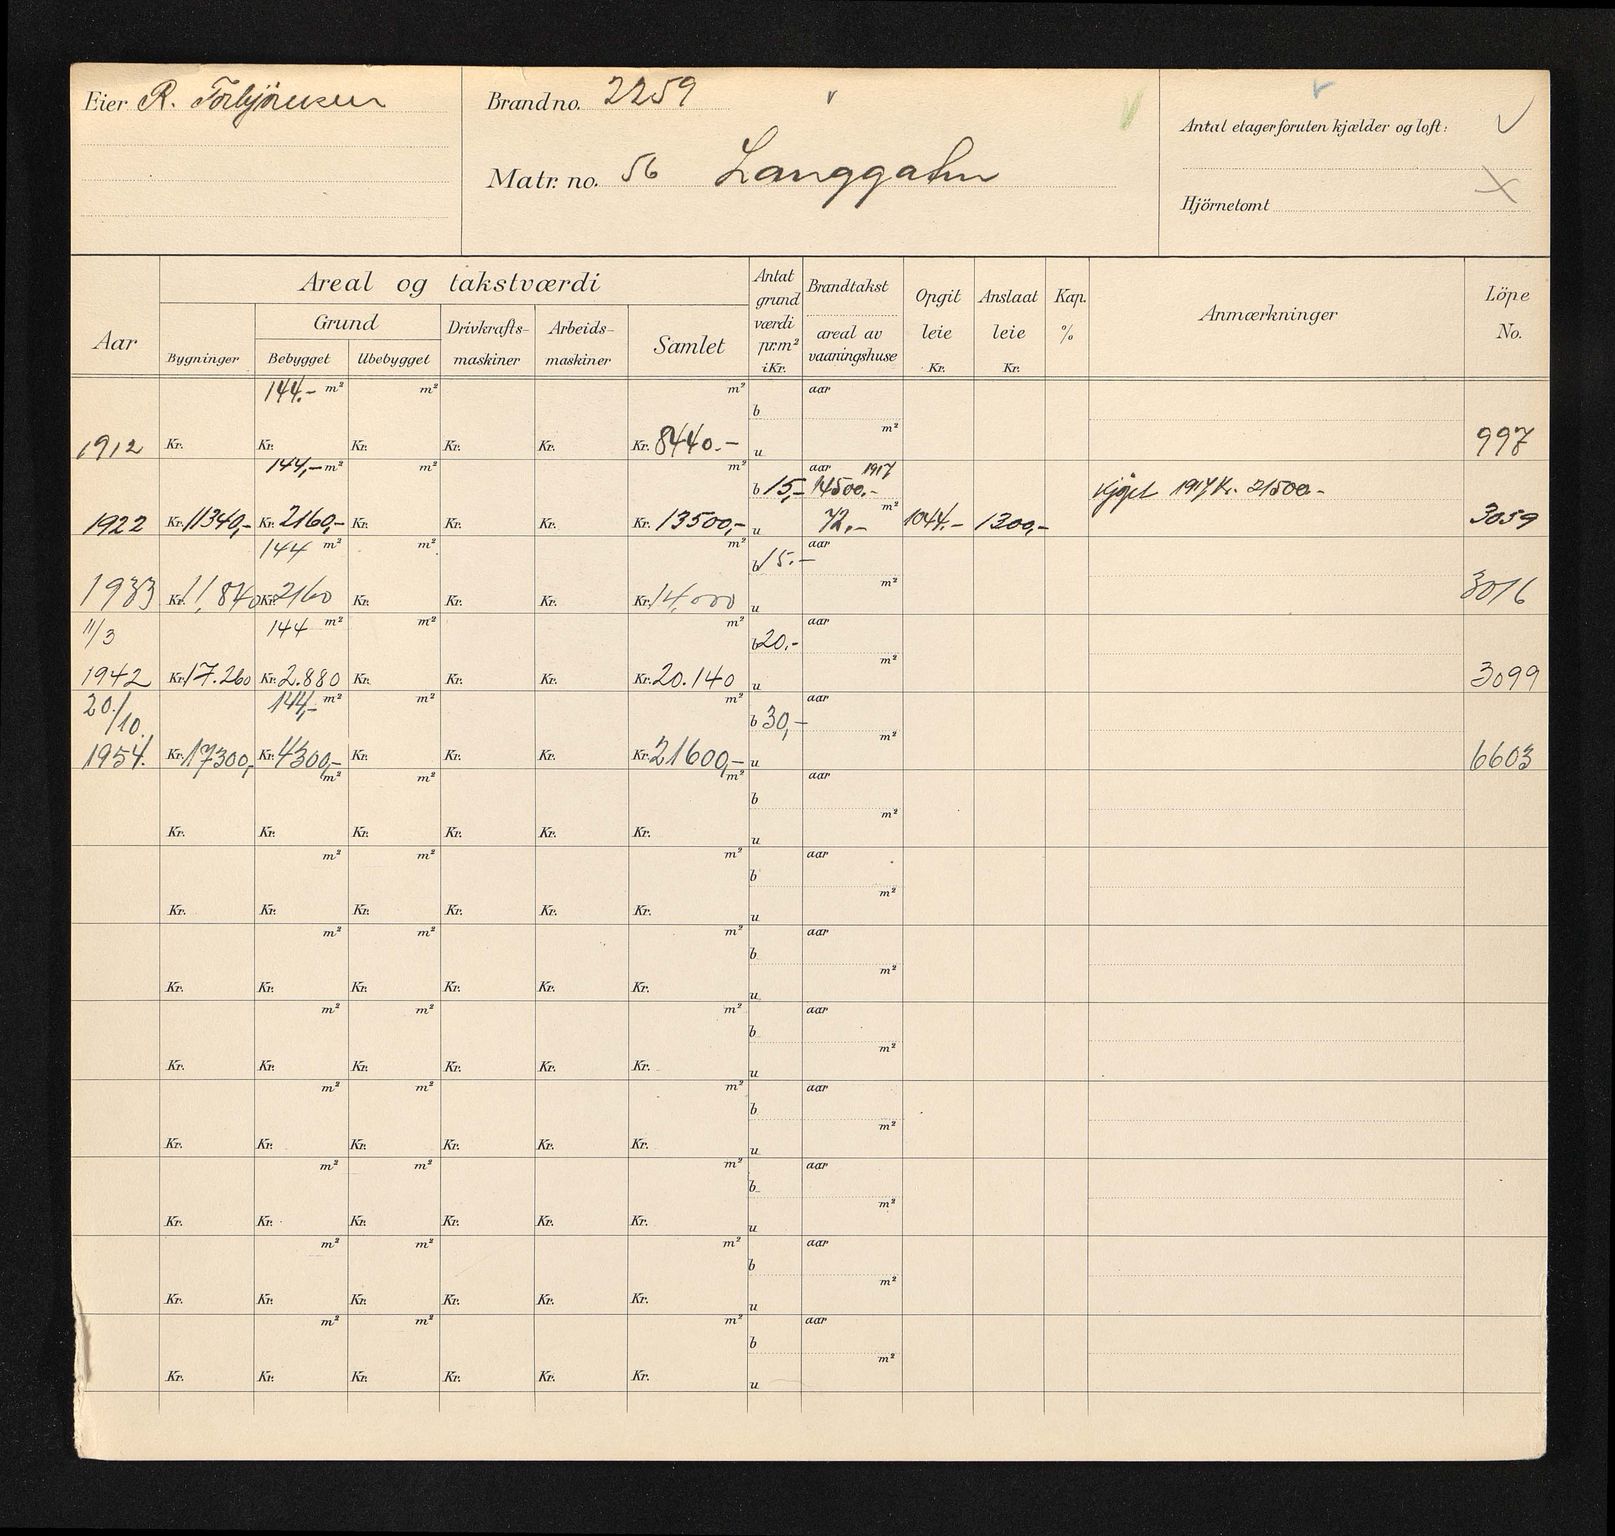 Eier R. Torbjörnsen
Brandno. 2259
Matr. no. 56 Langgaten
Antal etager foruten kjælder og loft:
Hjörnetomt
Aar
Areal og takstværdi
Bygninger
Grund
Bebygget
Ubebygget
Drivkrafts-maskiner
Arbeids-maskiner
Samlet
Antat grund værdi pr.m² i Kr.
Brandtakst
areal av vaaningshuse
Opgit leie Kr.
Anslaat leie Kr.
Kap. %
Anmærkninger
Löpe No.
144.- m² m² m² aar
b
m²
1912 Kr. Kr. Kr. Kr. Kr. Kr. 8440.- u 997
144,- m² m² m² aar 1917
b 15,- 14500.- Kjøpt 1917 Kr. 21500.-
m²
1922 Kr. 11340,- Kr. 2160,- Kr. Kr. Kr. Kr. 13500,- u 72,- 1044,- 1300,- 3059
144 m² m² m² aar
b 15.-
m²
1933 Kr. 11,840 Kr. 2160 Kr. Kr. Kr. Kr. 14,000 u 3016
11/3 144 m² m² m² aar
b 20,-
m²
1942 Kr. 17.260 Kr. 2.880 Kr. Kr. Kr. Kr. 20.140 u 3099
20./10. 144,- m² m² m² aar
b 30,-
m²
1954. Kr. 17300,- Kr. 4300,- Kr. Kr. Kr. Kr. 21600,- u 6603
m² m² m² aar
b
m²
Kr. Kr. Kr. Kr. Kr. Kr. u
m² m² m² aar
b
m²
Kr. Kr. Kr. Kr. Kr. Kr. u
m² m² m² aar
b
m²
Kr. Kr. Kr. Kr. Kr. Kr. u
m² m² m² aar
b
m²
Kr. Kr. Kr. Kr. Kr. Kr. u
m² m² m² aar
b
m²
Kr. Kr. Kr. Kr. Kr. Kr. u
m² m² m² aar
b
m²
Kr. Kr. Kr. Kr. Kr. Kr. u
m² m² m² aar
b
m²
Kr. Kr. Kr. Kr. Kr. Kr. u
m² m² m² aar
b
m²
Kr. Kr. Kr. Kr. Kr. Kr. u